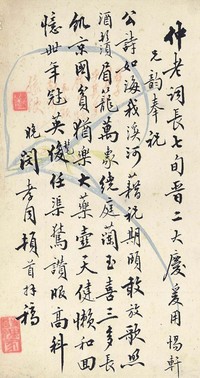 仲老词長七旬晋二大慶爰用惕軒
兄韵奉祝
公詩如海我溪河藉祝期頤敢放歌照
酒鬚眉籠萬象繞庭蘭玉喜三多長
飢京國貧猶樂大藥壺天健懶和回
憶卅年冠英俊任渠驚讚服高科
晚 閻孝同頓首拜稿